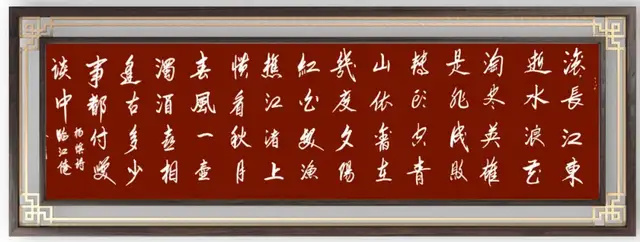 滚長江東
逝水浪花
淘尽英雄
是非成敗
轉頭空青
山依舊在
幾度夕陽
紅白髮漁
樵江渚上
慣看秋月
春風一壺
濁酒喜相
逢古多少
事都付笑
談中
杨慎詩
临江仙